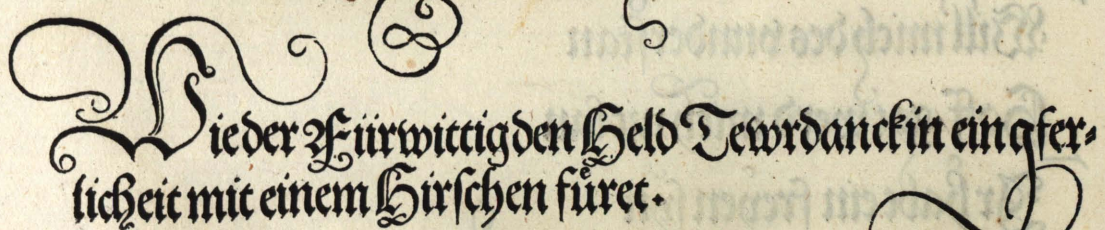 Wie der Fürwittig den Held Tewrdanck in ein gfer⸗
licheit mit einem Hirschen fůret.